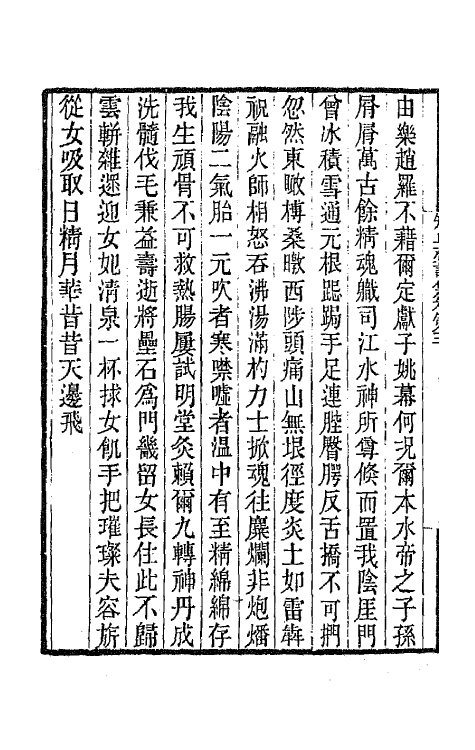 由樂趙羅不藉爾定獻子姚幕何況爾本水帝之子孫
屑屑萬古餘精魂職司江水神所尊倏而置我陰厓門
曾冰積雪通元根跽跼手足連腔臀腭反舌撟不可捫
忽然東瞰榑桑暾西陟頭痛山無垠徑度炎土如雷犇
祝融火師相怒吞沸湯滿杓力士掀魂往麋爛非炮燔
陰陽二氣胎一元吹者寒噤噓者溫中有至精綿綿存
我生頑骨不可救熱腸屢試明堂灸賴爾九轉神丹成
洗髓伐毛兼益壽逝將壘石爲門畿留女長住此不歸
雲輧雜遝迎女妃清泉一杯捄女飢手把璀璨夫容旂
從女吸取日精月華昔昔天邊飛